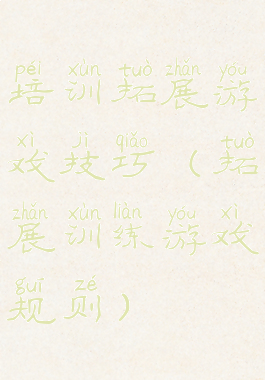 péi xùn tuò zhǎn yóu
培训拓展游
xì jì qiǎo tuò
戏技巧（拓
zhǎn xùn liàn yóu xì
展训练游戏
guī zé
规则）